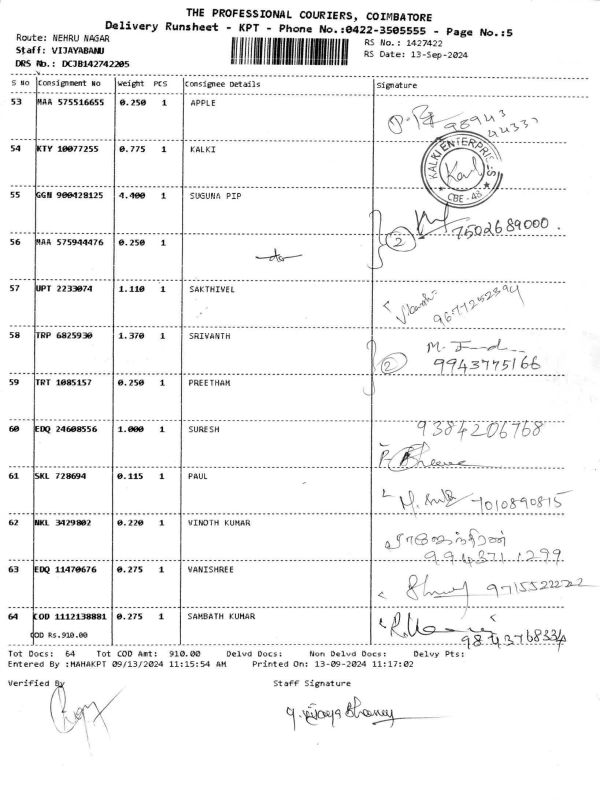 THE PROFESSIONAL COURIERS, COIMBATORE
Delivery Runsheet - KPT - Phone No.:0422-3505555 - Page No.:5
Route: NEHRU NAGAR RS No.: 1427422
Staff: VIJAYABANU RS Date: 13-Sep-2024
DRS No.: DCJB142742205
S No Consignment No Weight PCS Consignee Details Signature
53 MAA 575516655 0.250 1 APPLE
98943
44337
54 KTY 10077255 0.775 1 KALKI
KALKI ENTERPRISES
CBE - 48
55 GGN 900428125 4.400 1 SUGUNA PIP
2 7502689000.
56 MAA 575944476 0.250 1
57 UPT 2233074 1.110 1 SAKTHIVEL
9677252394
58 TRP 6825930 1.370 1 SRIVANTH
2 9943775166
59 TRT 1085157 0.250 1 PREETHAM
60 EDQ 24608556 1.000 1 SURESH 9384206768
61 SKL 728694 0.115 1 PAUL
7010890815
62 NKL 3429802 0.220 1 VINOTH KUMAR
994371 1299
63 EDQ 11470676 0.275 1 VANISHREE
64 COD 1112138881 0.275 1 SAMBATH KUMAR
COD Rs.910.00 9843768334
Tot Docs: 64 Tot COD Amt: 910.00 Delvd Docs: Non Delvd Docs: Delvy Pts:
Entered By :MAHAKPT 09/13/2024 11:15:54 AM Printed On: 13-09-2024 11:17:02
Verified By Staff Signature